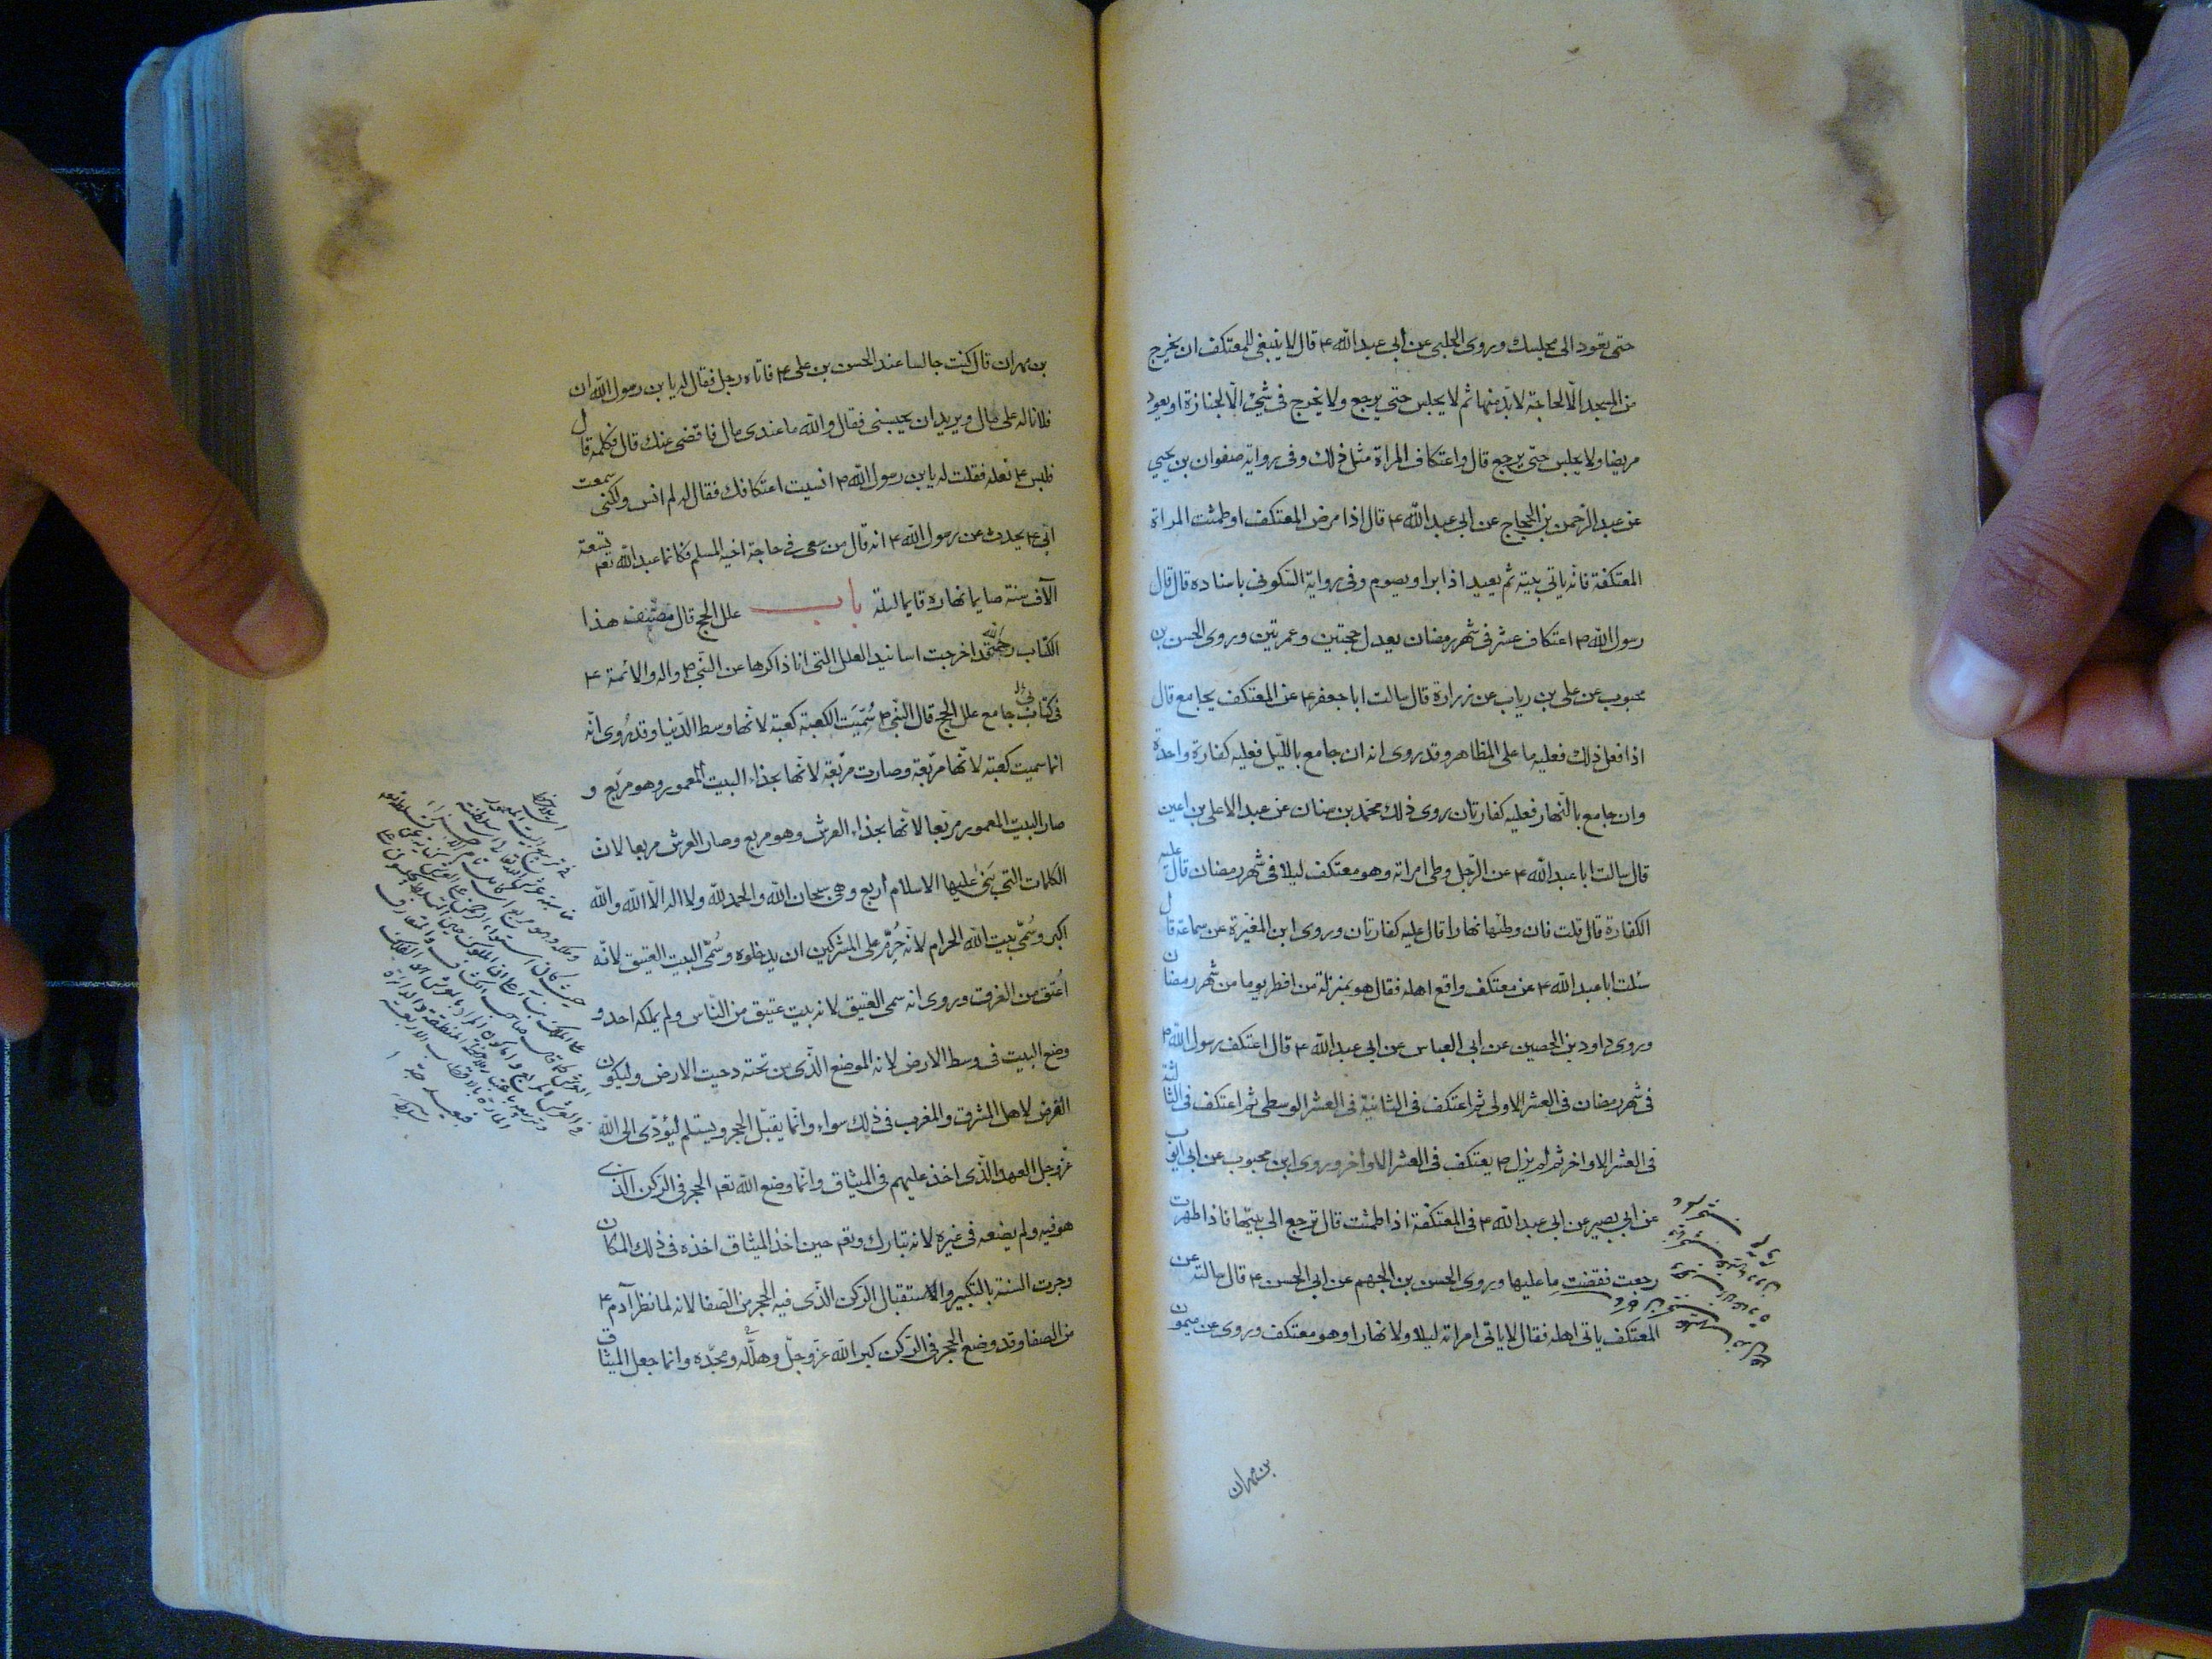 حتى تعود الى مجلسك وروى الحلبى عن ابى عبد الله ۴ قال لا ينبغى للمعتكف ان يخرج
من المسجد الّا لحاجة لا بدّ منها ثم لا يجلس حتى يرجع ولا يخرج فى شئ الّا لجنازة او يعود
مريضا ولا يجلس حتى يرجع قال واعتكاف المراة مثل ذلك وفى رواية صفوان بن يحيي
عن عبد الرّحمن بن الحجاج عن ابى عبد الله ۴ قال اذا مرض المعتكف او طمثت المراة
المعتكفة فانه ياتى بيته ثم يعيد اذا برا ويصوم وفى رواية السّكونى باسناده قال قال
رسول الله ص اعتكاف عشر فى شهر رمضان يعدل حجتين وعمرتين وروى الحسن بن
محبوب عن على بن رياب عن زرارة قال سالت ابا جعفر ۴ عن المعتكف يجامع قال
اذا فعل ذلك فعليه ما على المظاهر وقد روى انه ان جامع بالليل فعليه كفارة واحدة
وان جامع بالنّهار فعليه كفارتان روى ذلك محمّد بن سنان عن عبد الاعلى بن اعين
قال سالت ابا عبد الله ۴ عن الرّجل وطى امراته وهو معتكف ليلا فى شهر رمضان قال عليه
الكفارة قال قلت فان وطئها نهارا قال عليه كفارتان وروى ابن المغيرة عن سماعة قال
سئلت ابا عبد الله ۴ عن معتكف واقع اهله فقال هو بمنزلة من افطر يوما من شهر رمضان
وروى داود بن الحصين عن ابى العباس عن ابى عبد الله ۴ قال اعتكف رسول الله ص
فى شهر رمضان فى العشر الاولى ثم اعتكف فى الثانية فى العشر الوسطى ثم اعتكف فى الثالثة
فى العشر الاواخر ثم لم يزل ص يعتكف فى العشر الاواخر وروى ابن محبوب عن ابى ايوب
عن ابى بصير عن ابى عبد الله ۴ فى المعتكفة اذا طمثت قال ترجع الى بيتها فاذا طهرت
رجعت فقضت ما عليها وروى الحسن بن الجهم عن ابى الحسن ۴ قال سالته عن
المعتكف ياتى اهله فقال لا ياتى امراته ليلا ولا نهارا وهو معتكف وروى عن ميمون
بن مهران
بن مهران قال كنت جالسا عند الحسن بن على ۴ فاتاه رجل فقال له يا بن رسول الله ان
فلانا له على مال ويريد ان يحبسنى فقال والله ما عندى مال فاقضى عنك قال فكلمه قال
فلبس ۴ نعله فقلت له يا بن رسول الله ص انسيت اعتكافك فقال له لم انس ولكنى سمعت
ابى ۴ يحدث عن رسول الله ۴ انه قال من سعى فى حاجة اخيه المسلم فكانما عبد الله تعم تسعة
آلاف سنة صايما نهاره قايما ليله باب علل الحج قال مصنّف هذا
الكتاب رحمه الله قد اخرجت اسانيد العلل التى انا ذاكرها عن النّبى ص واله والائمة ۴
فى كتاب جامع علل الحج قال النبى ص سُمّيَت الكعبة كعبة لانها وسط الدّنيا وقد رُوى انّه
انما سميت كعبة لانّها مربّعة وصارت مربّعة لانّها بحذاء البيت المعمور وهو مربّع و
صار البيت المعمور مربّعا لانّها بحذاء العرش وهو مربع وصار العرش مربعا لان
الكلمات التى بَنىَ عليها الاسلام أربع وهى سبحان الله والحمد لله ولا اله الّا الله والله
اكبر وسُمّى بيت الله الحرام لانّه حُرِّمَ على المشركين ان يدخلوه وسُمّى البيت العتيق لانّه
اُعتق من الغرق وروى انه سمى العتيق لانه بيت عتيق من النّاس ولم يملكه احد و
وضع البيت فى وسط الارض لانه الموضع الّذى من تحته دحيت الارض وليكون
الفرض لاهل المشرق والمغرب فى ذلك سواء وانّما يقبّل الحجر ويستلم ليُؤدّى الى الله
عزّ وجل العهد الّذى اخذ عليهم فى الميثاق وانّما وضع الله تعم الحجر فى الرّكن الّذى
هو فيه ولم يضعه فى غيره لانه تبارك وتعم حين اخذ الميثاق اخذه فى ذلك المكان
وجرت السنة بالتكبير والاستقبال الرّكن الّذى فيه الحجر من الصّفا لانه لما نظر آدم ۴
من الصفا وقد وضع الحجر فى الرّكن كبر الله عزّ وجلّ وهلّله ومجّده وانما جعل الميثاق